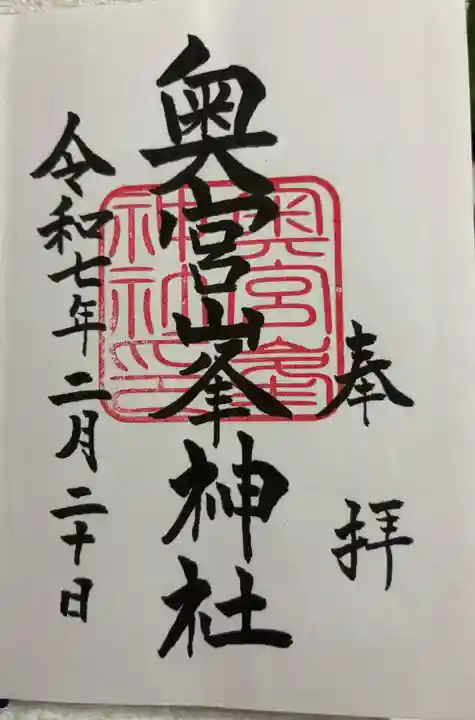 奉拝
奥宮峯神社
奥宮峯神社印
令和七年二月二十日